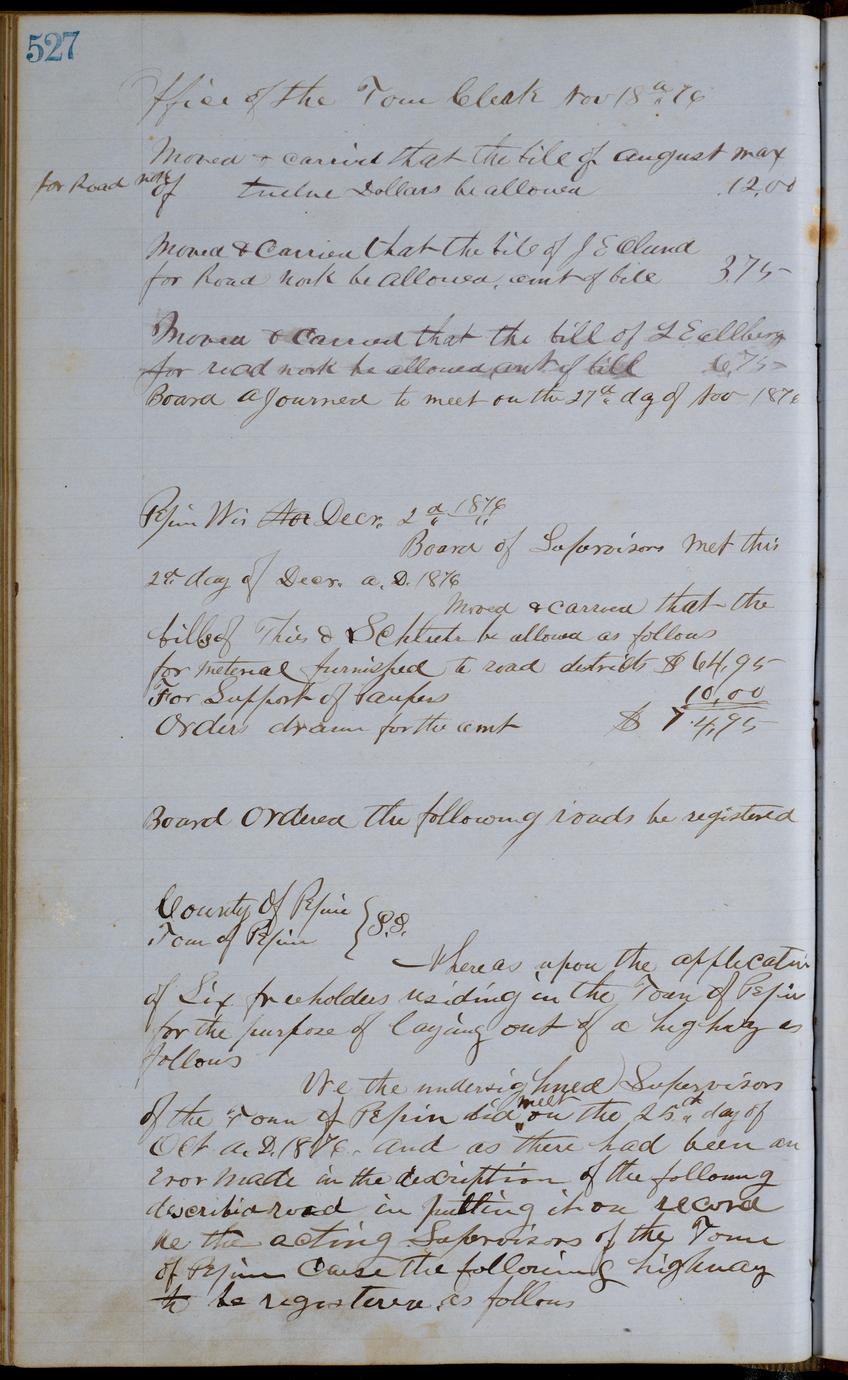 527
Office of the Town Clerk Nov 18th 76
Moved & carried that the bill of august max
for Road work
of twelve Dollars be allowed 12.00
Moved & Carried that the bill of J E Clund
for Road work be allowed. amt of bill 3.75
Moved & carried that the bill of L E allberg
for road work be allowed amt of bill 6.75
Board aJourned to meet on the 27th day of Nov 1876
Pepin Wis Nov Decr. 2d 1876
Board of Supervisors Met this
2d day of Decr. a. D. 1876
Moved & carried that the
bills of Thies & Schlute be allowed as follows
for meterial furnished to road districts $ 64,95
For Support of Paupers 10,00
Orders drawn for the amt $ 74,95
Board Ordered the following roads be registered
County Of Pepin
Town of Pepin } S.S.
Whereas upon the application
of Six freeholders residing in the Town of Pepin
for the purpose of laying out of a highway as
follows
We the undersighned Supervisors
of the Town of Pepin did meet on the 25th day of
Oct a. D. 1876. and as there had been an
Eror Made in the description of the following
describid road in putting it on record
We the acting Supervisors of the Town
of Pepin Cause the following highway
to be registered as follows